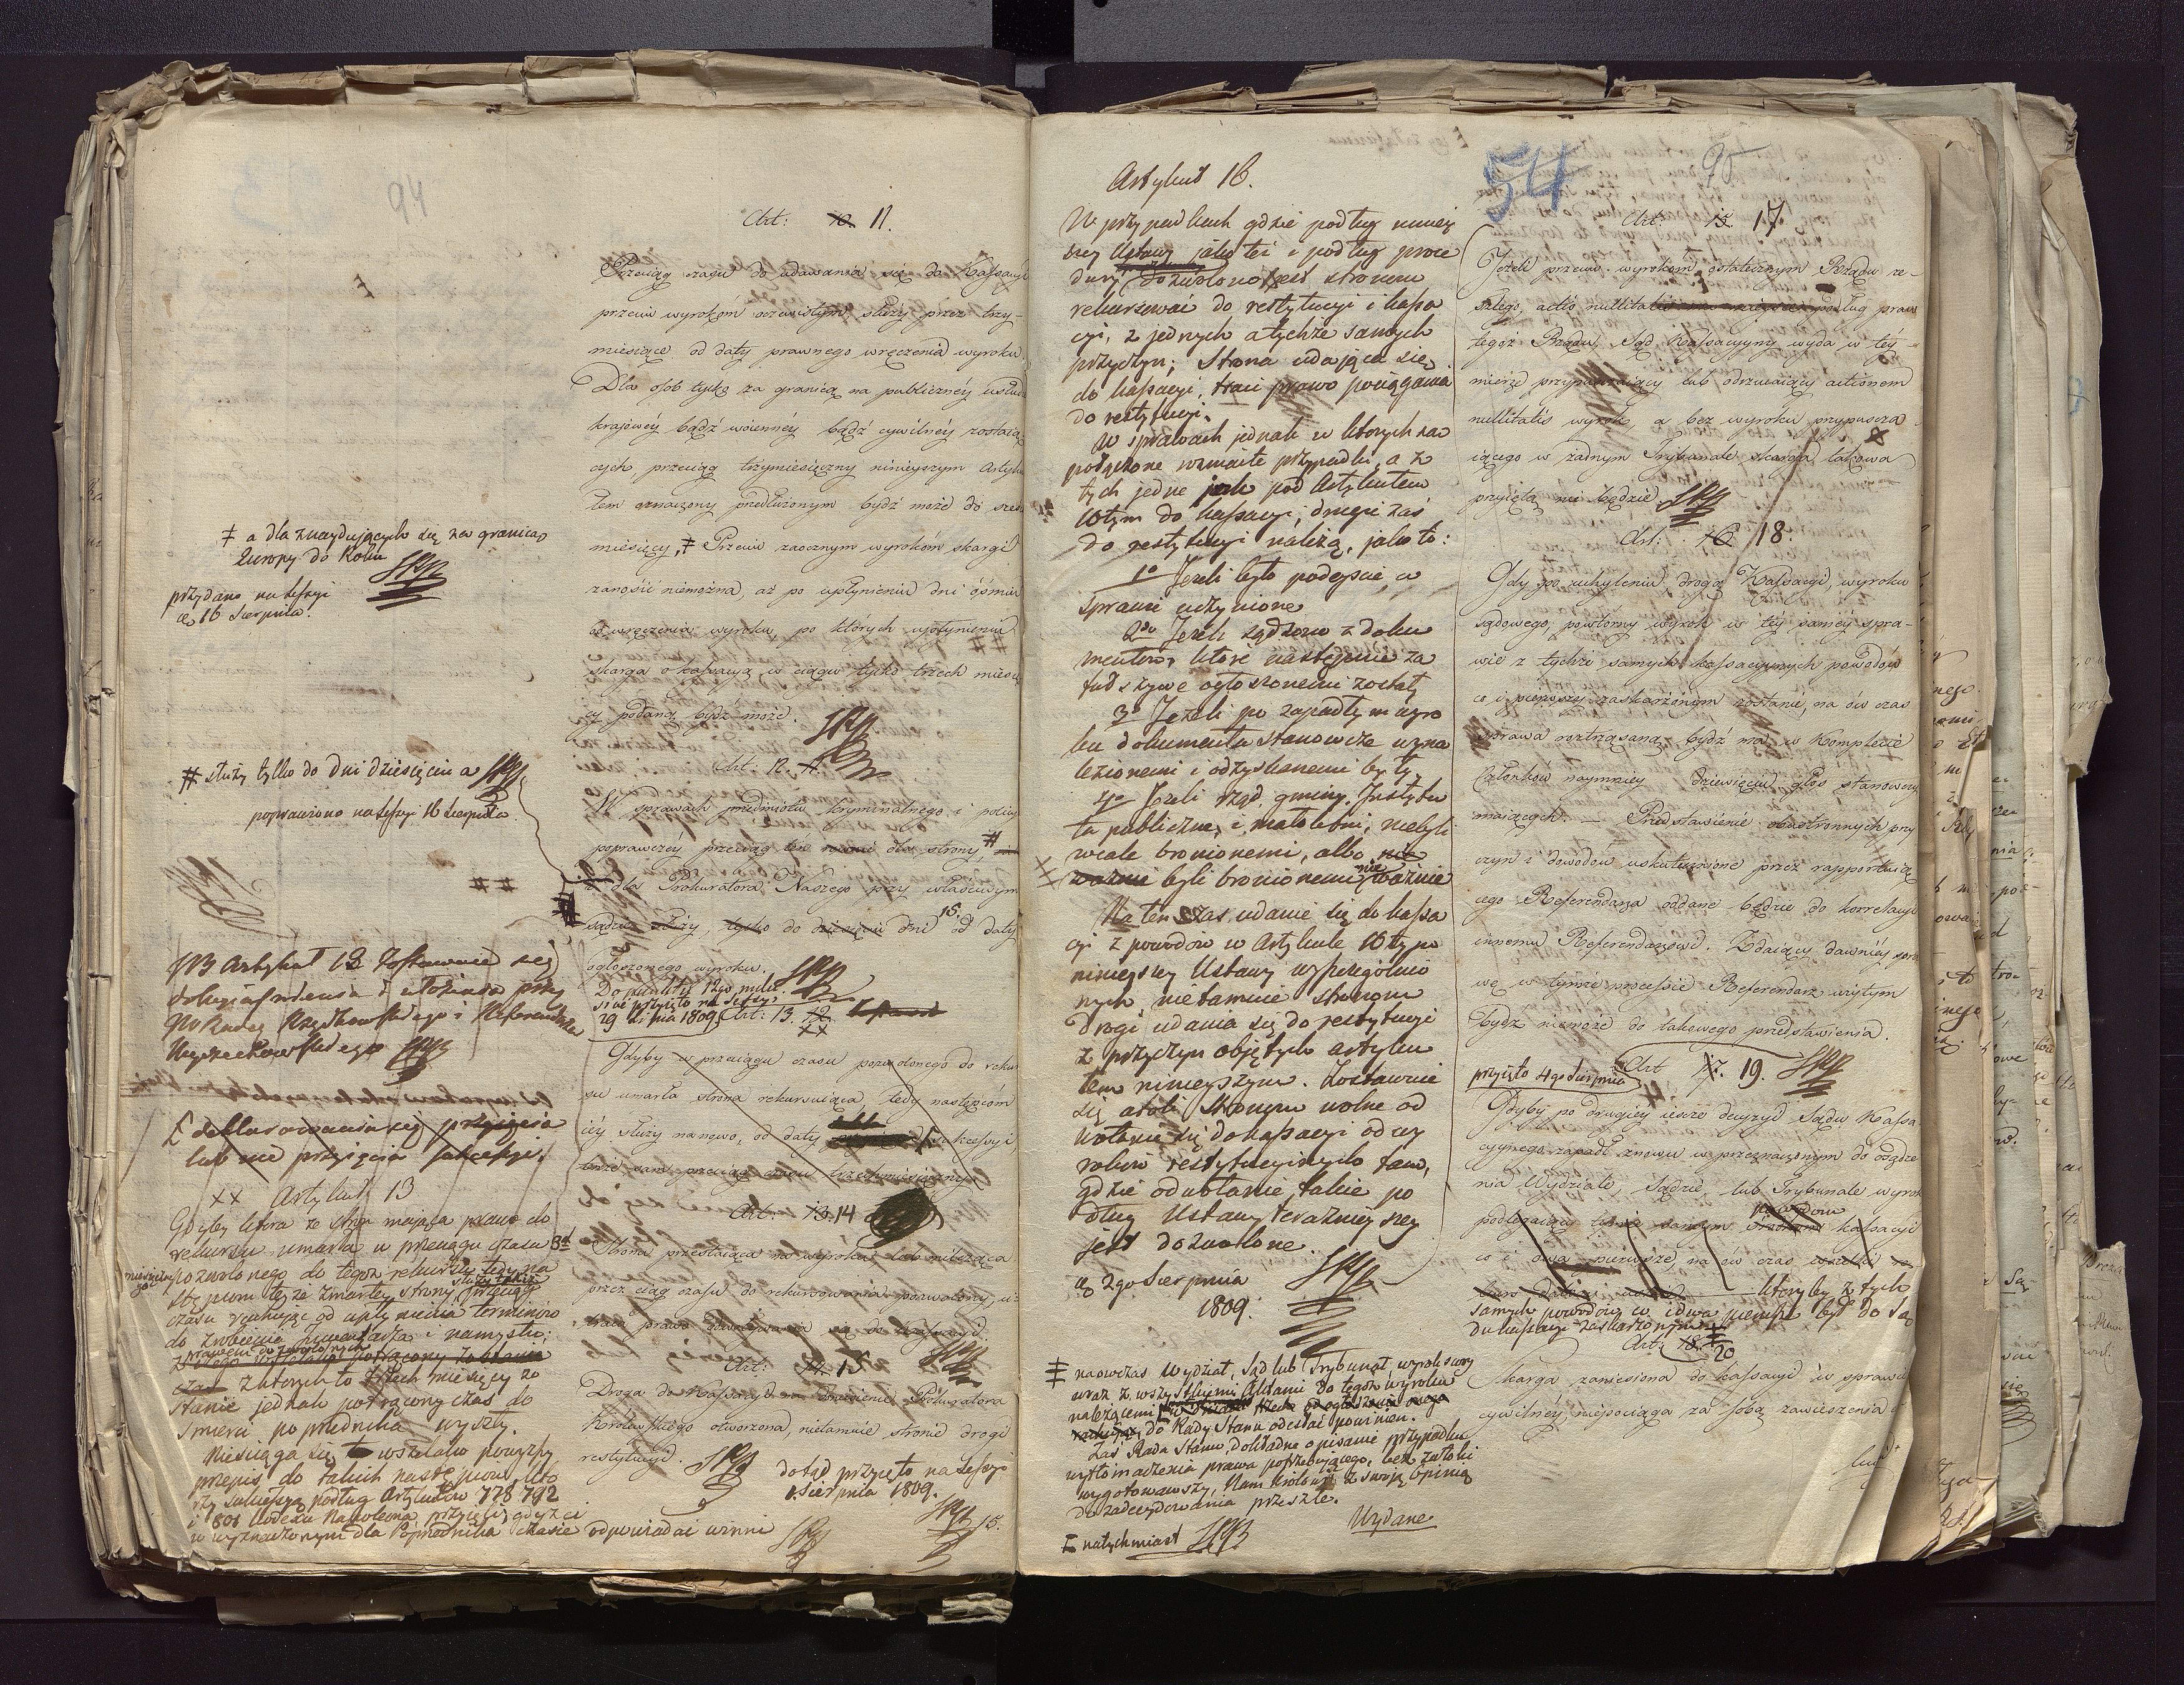 94
Art: 10. 11.
Przeciąg czasu do udawania się do Kassacyi
przeciw wyrokóm oczewistym, służy przez trzy-
miesiące od daty prawnego wręczenia wyroku.
Dla osob tylko za granicą na publiczney usłudze
kraiowey bądź woienney bądź cywilney zostaią
cych przeciąg trzymiesięczny ninieyszym Artyku
łem oznaczony przedłużonym bydź może do sześciu
miesięcy, ǂ Przeciw zaocznym wyrokóm skargi
zanosić niemożna, aż po upłynieniu dni ośmiu
od wręczenia wyroku, po których upłynieniu
skarga o kassacyą w ciągu tylko trzech miesię
cy podaną bydź może.
ǂ a dla znayduiących się za granicą
Europy do Roku
przydano na Sessyi
d. 16 Sierpnia.
Art: 12. 11.
W sprawach przedmiotu kryminalnego i policyi
poprawczey przeciąg ten równie dla strony, #
dla Prokuratora Naszego przy właściwym
sądzie służy, tylko do dziesięciu dni 15. od daty
ogłoszonego wyroku.
# służy tylko do dni dziesięciu a
poprawiono na Sessyi 16 Sierpnia
Do punktu 12go
przyięto na Sessyi
29 Lipca 1809.
Art: 13. 12.
XX
NB Artykuł 13 Zostawuie się
do ułożenia przez
i Referendarza
Gdyby w przeciągu czasu pozwolonego do rekur
su umarła strona rekursuiąca, tedy następcóm
iey służy nanowo, od daty sukcessyi
tenże sam przeciąg czasu trzechmiesięczny
deklarowania się przyięcia
lub nie przyięcia sukcessyi.
XX Artykuł 13
Gdyby ktora ze stron maiąca prawo do
rekursu umarła w przeciągu czasu 3ch
miesięcznego pozwolonego do tegoż rekursu, tedy na
stępcom teyże zmarłey strony, służy także przeciąg
czasu rachuiąc od upłynienia terminów
do zrobienia inwentarza i namysłu;
z których to trzech miesięcy zo
stanie jednak potrącony czas do
śmierci poprzednika wyszły.
Nieściąga się wszelako powyższy
przepis do takich następców, kto
rzy sukcessyą podług Artykułów 778 792
i 801 Kodexu Napoleona przyięli, gdyż ci
w wyznaczonym dla Poprzednika czasie odpowiadać winni
Art: 13. 14
Strona przestaiąca na wyroku lub milcząca
przez ciąg czasu do rekursowania pozwolony, u-
traca prawo odwoływania się do Kassacyi.
Art: 14. 15.
Droga do Kassacyi na żądanie Prokuratora
Krolewskiego otworzona, nietamuie stronie drogi
restytucyi.
dotąd przyięto na Sessyi
1. Sierpnia 1809.
15.
54
95
Artykuł 16.
W przypadkach gdzie podług niniey
szey Ustawy jako też i podług proce
dury dozwolono jest stronom
rekursować do restytucyi i kassa
cyi, z jednych a tychże samych
przyczyn; Strona udająca się
do kassacyi, traci prawo pociągania
do restytucyi.
W sprawach jednak w ktorych są
połączone rozmaite przypadki, a z
tych jedne pod Artykułem
10tym do kassacyi, drugie zaś
do restytucyi należą, jako to:
1o Jeżeli było podeyście w
sprawie uczynione
2do Jeżeli sądzono z doku
mentów, które następnie za
fałszywe ogłoszonemi zostały
3o Jeżeli po zapadłym wyro
ku dokumenta stanowcze wyna
lezionemi i odzyskanemi były,
4o Jeżeli rząd, gminy, Instytu
ta publiczne, i małoletni, niebyli
wcale bronionemi, albo nie
ważnie byli bronionemi nie ważnie
Na ten czas udanie się do kassa
cyi z powodów w Artykule 10tym
ninieyszey Ustawy wyszczegolnio
nych nietamuie stronom
drogi udania się do restytucyi
z przyczyn objętych artyku
łem ninieyszym. Zostawuie
się atoli stronom wolne od
wołanie się do kassacyi od wy
roków restytucyinych tam,
gdzie odwołanie takie po
dług Ustawy teraźniey szey
jest dozwolone.
d. 2go Sierpnia
1809.
ǂ naowczas Wydział, Sąd lub Trybunał wyrokuiący
wraz z wszystkiemi Aktami do tegoż wyroku
należącemi
do Rady Stanu odesłać powinien.
Zaś Rada Stanu, dokładne opisanie przypadku
wytłomaczenia prawa potrzebuiącego, bez zwłoki
wygotowawszy, Nam Krolowi z swoią Opinią
do zadecydowania prześle.
Wydane
natychmiast
Art: 15. 17
Jeżeli przeciw wyrokom ostatecznym Rządu ze-
szłego, actio nullitatis podług praw
tegoż Rządu, Sąd Kassacyyny wyda w tey
mierze przypuszczaiący lub odrzucaiący actionem
nullitatis wyrok, a bez wyroku przypuszcza
iącego w żadnym Trybunale skarga takowa
przyiętą nie będzie
Art: 16. 18.
Gdy po uchyleniu drogą Kassacyi, wyroku
sądowego, powtorny wyrok w tey samey spra-
wie z tychże samych kassacyynych powodów
co i pierwszy zaskarżonym zostanie, na ów czas
sprawa roztrząsaną bydź ma w Komplecie
Członków naymniey dziewięciu głos stanowczy
maiących. — Przedstawienie obustronnych przy
czyn i dowodów uskutecznione przez rapportuią
cego Referendarza, oddane będzie do korrelacyi
innemu Referendarzowi. Zdaiący dawniey spra
wę w tymże processie Referendarz użytym
bydź niemoże do takowego przedstawienia.
przyięto 4go Sierpnia
Art 17. 19.
Gdyby po drugiey ieszcze decyzyi Sądu Kassa
cyynego zapadł znowu w przeznaczonym do osądze
nia Wydziale, Sądzie, lub Trybunale wyrok
podlegaiący tymże samym powodom kassacyi
co i dwa pierwsze, na ów czas
któryby z tych
samych powodów co i dwa pierwsze był do Są
du kassacyi zaskarżonym
Art: 18. 20
Skarga zaniesiona do kassacyi w sprawie
cywilney, niepociąga za sobą zawieszenia